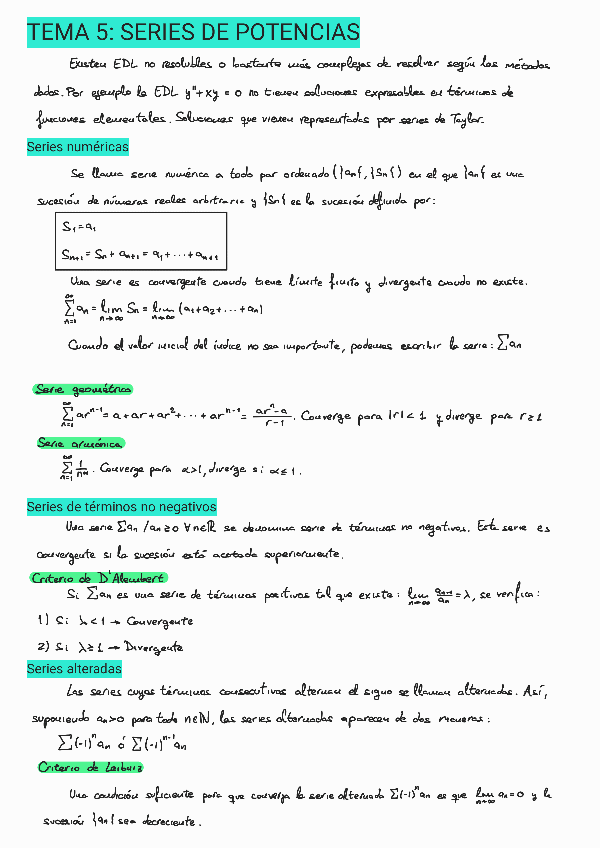 TEMA 5: SERIES DE POTENCIAS
Existen EDL no resolubles o bastante más complejas de resolver según los métodos
dados. Por ejemplo la EDL y''+xy = 0 no tienen soluciones expresables en términos de
funciones elementales. Soluciones que vienen representadas por series de Taylor.
Series numéricas
Se llama serie numérica a todo par ordenado ({an}, {Sn}) en el que {an} es una
sucesión de números reales arbitraria y {Sn} es la sucesión definida por:
S₁ = a₁
Sₙ₊₁ = Sₙ + aₙ₊₁ = a₁ + ··· + aₙ₊₁
Una serie es convergente cuando tiene límite finito y divergente cuando no existe.
∑_{n=1}^{∞} aₙ = lim_{n→∞} Sₙ = lim_{n→∞} (a₁+a₂+...+aₙ)
Cuando el valor inicial del índice no sea importante, podemos escribir la serie: ∑aₙ
Serie geométrica
∑_{n=1}^{∞} arⁿ⁻¹ = a + ar + ar² + ··· + arⁿ⁻¹ = (arⁿ-a)/(r-1). Converge para |r| < 1 y diverge para r ≥ 1
Serie armónica
∑_{n=1}^{∞} 1/n^α. Converge para α>1, diverge si α ≤ 1.
Series de términos no negativos
Una serie ∑aₙ /aₙ ≥ 0 ∀n∈ℝ se denomina serie de términos no negativos. Esta serie es
convergente si la sucesión está acotada superiormente.
Criterio de D'Alembert
Si ∑aₙ es una serie de términos positivos tal que existe: lim_{n→∞} aₙ₊₁/aₙ = λ, se verifica:
1) Si λ < 1 → Convergente
2) Si λ ≥ 1 → Divergente
Series alteradas
Las series cuyos términos consecutivos alternan el signo se llaman alternadas. Así,
suponiendo aₙ>0 para todo n∈ℕ, las series alternadas aparecen de dos maneras:
∑(-1)ⁿaₙ ó ∑(-1)ⁿ⁻¹aₙ
Criterio de Leibniz
Una condición suficiente para que converja la serie alternada ∑(-1)ⁿaₙ es que lim_{n→∞} aₙ = 0 y la
sucesión {aₙ} sea decreciente.